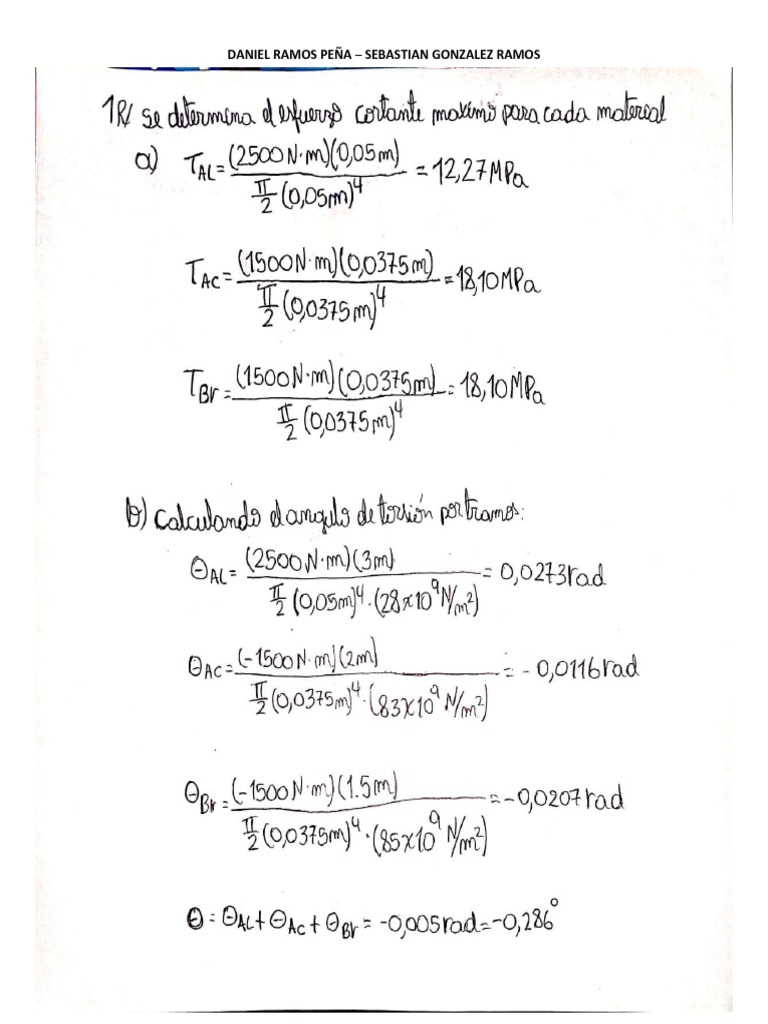 DANIEL RAMOS PEÑA – SEBASTIAN GONZALEZ RAMOS
1R/ se determina el esfuerzo cortante maximo para cada material
a) T_AL = (2500 N·m)(0,05 m) / (π/2 (0,05m)^4) = 12,27 MPa
T_AC = (1500 N·m)(0,0375m) / (π/2 (0,0375m)^4) = 18,10 MPa
T_Br = (1500 N·m)(0,0375m) / (π/2 (0,0375m)^4) = 18,10 MPa
b) Calculando el angulo de torsión por tramos:
θ_AL = (2500 N·m)(3m) / (π/2 (0,05m)^4 · (28x10^9 N/m²)) = 0,0273 rad
θ_AC = (-1500 N·m)(2m) / (π/2 (0,0375m)^4 · (83x10^9 N/m²)) = -0,0116 rad
θ_Br = (-1500 N·m)(1.5m) / (π/2 (0,0375m)^4 · (85x10^9 N/m²)) = -0,0207 rad
θ = θ_AL + θ_AC + θ_Br = -0,005 rad = -0,286°